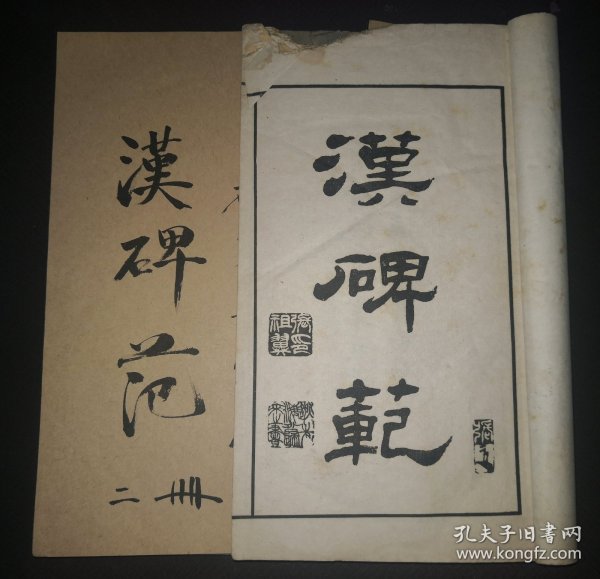 漢碑范
二冊
漢碑範
張印祖翼
孔夫子旧书网
www.kongfz.com